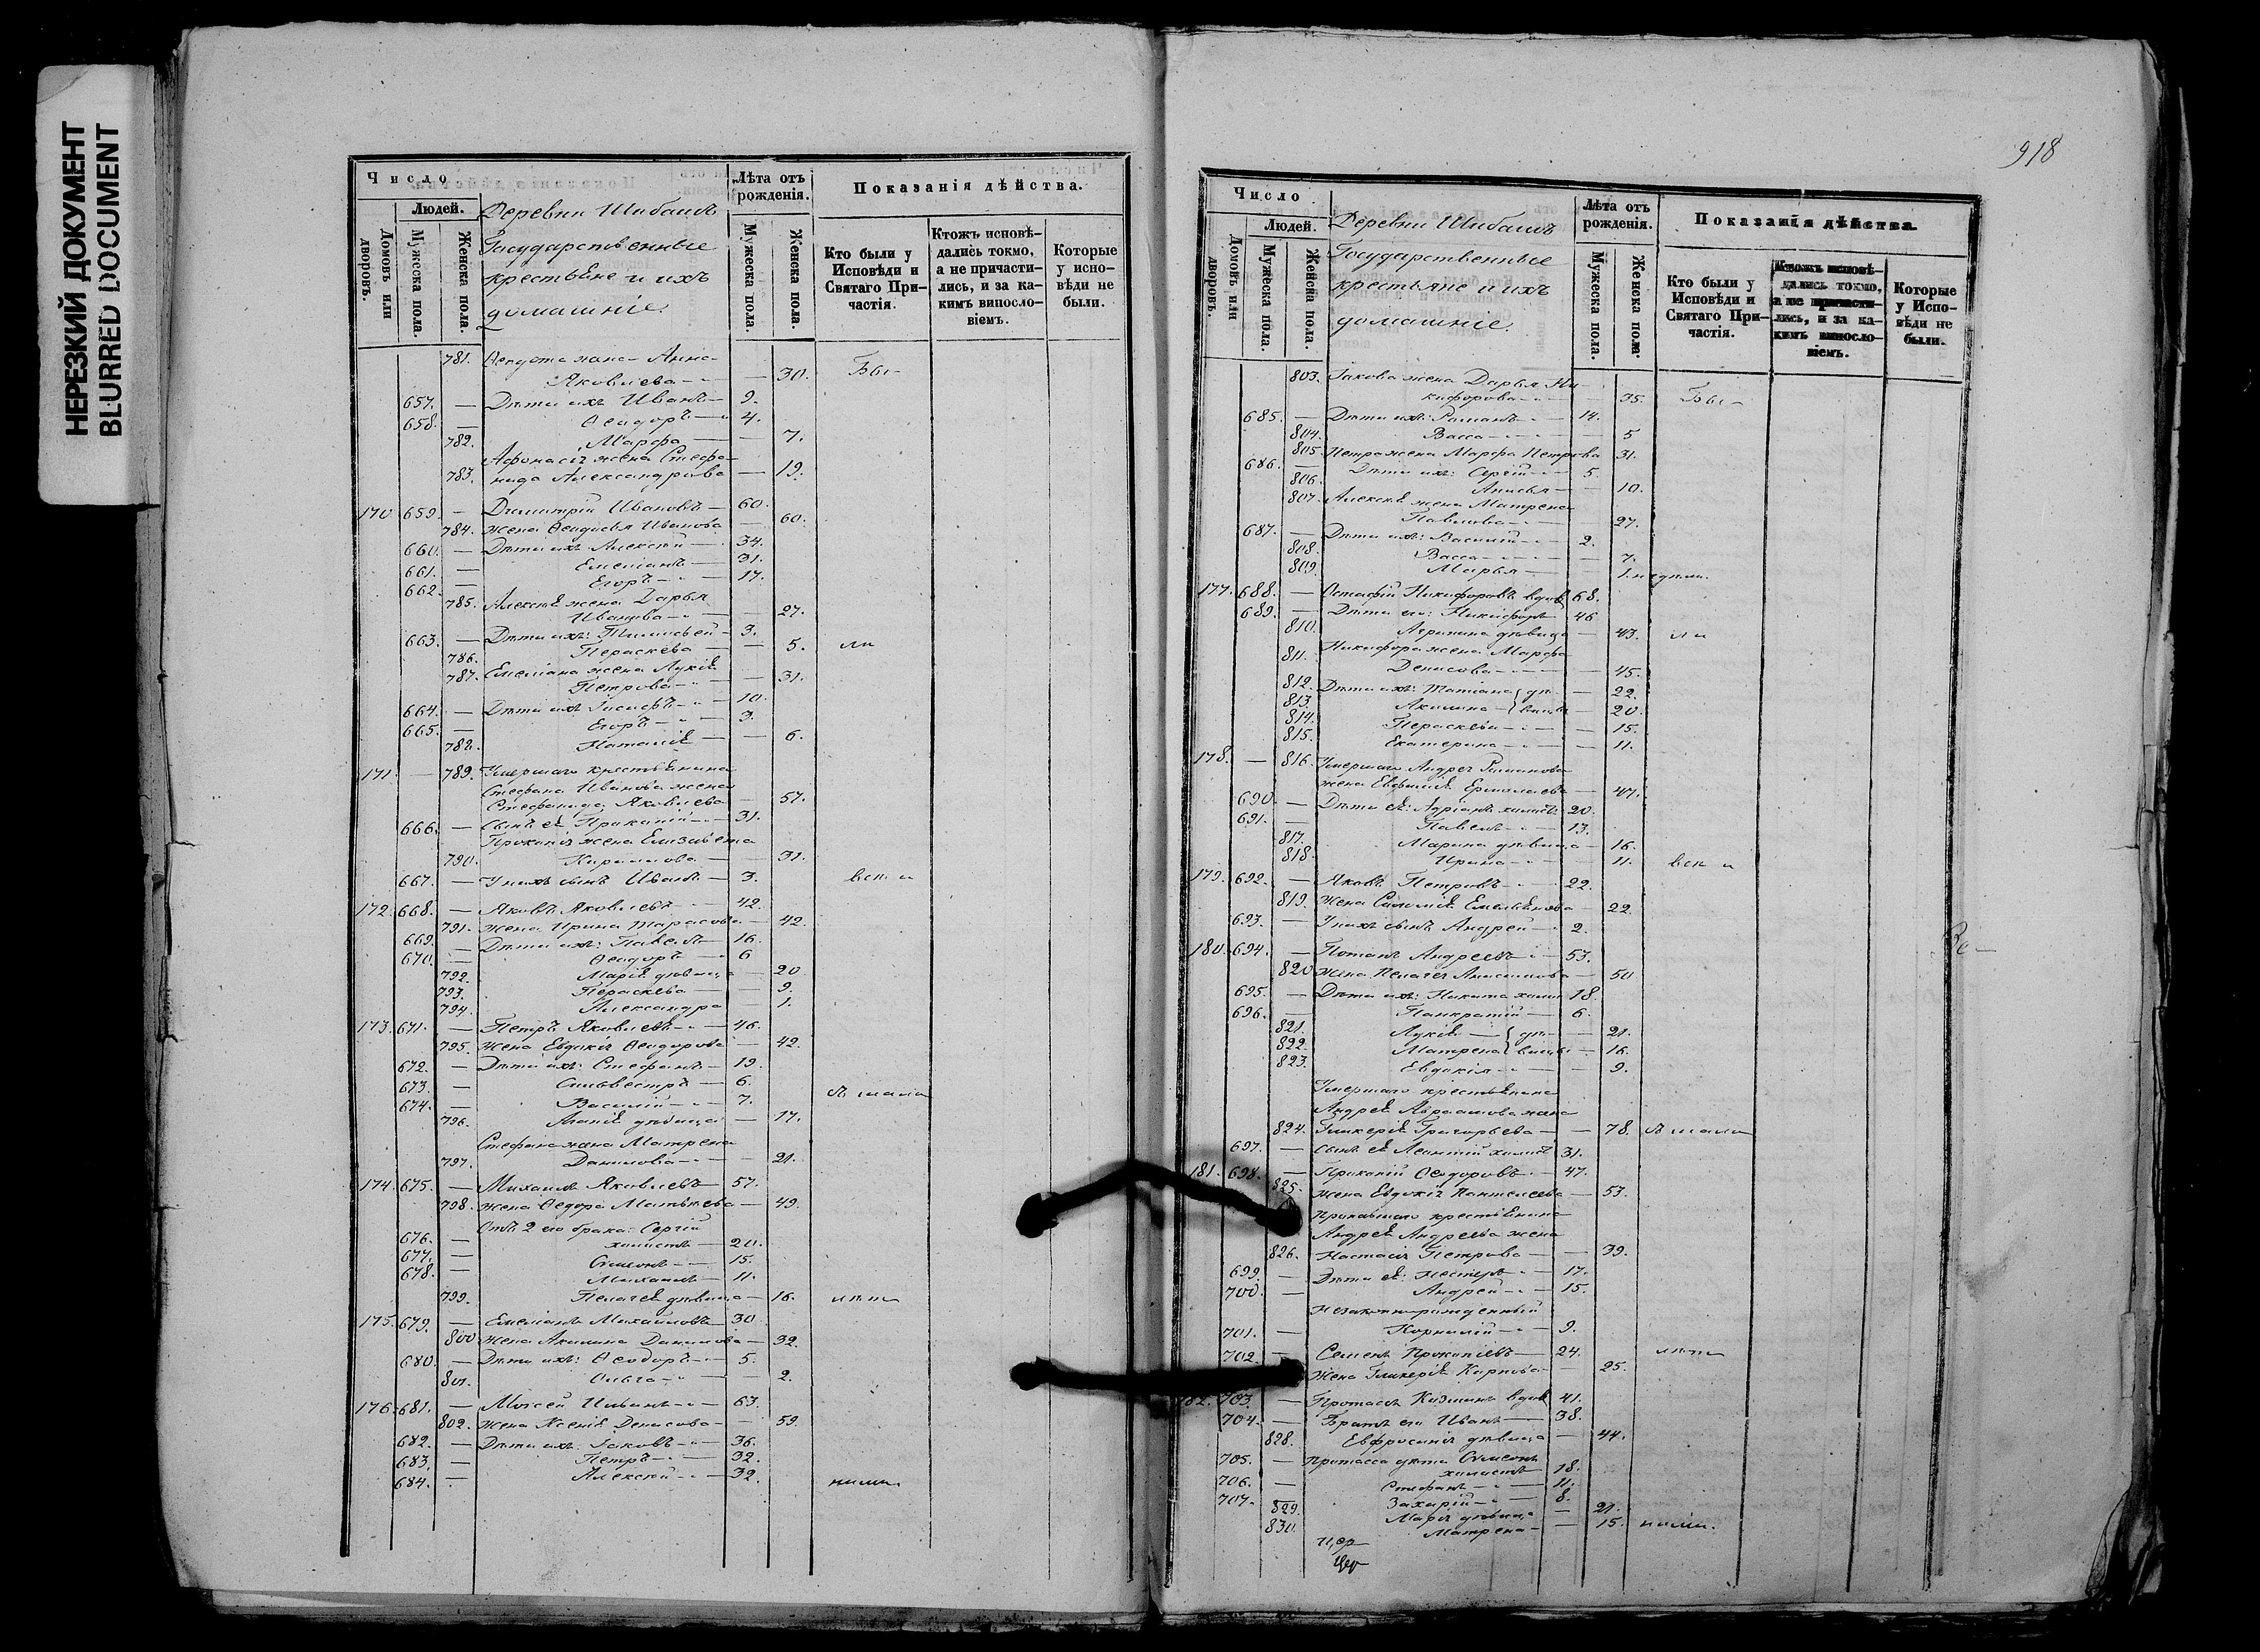 НЕРЕЗКИЙ ДОКУМЕНТ
BLURRED DOCUMENT
Число
Людей.
Домовъ или дворовъ.
Мужеска пола.
Женска пола.
Деревни
Государственные
крестьяне и ихъ
домашніе.
Лѣта отъ рожденія.
Мужеска пола.
Женска пола.
Показанія дѣйства.
Кто были у Исповѣди и Святаго При-частія.
Ктожъ исповѣ-дались токмо, а не причасти-лись, и за ка-кимъ винослo-віемъ.
Которые у испо-вѣди не были.
781. жена Анна
Яковлева 30. Бы-
657. — Дѣти ихъ Иванъ 9.
658. — Ѳеодоръ 4.
782. Марфа — 7.
Афонасія жена Стефа-
783. нида Александрова — 19.
170 659. — Димитрій Ивановъ — 60.
784. Жена Ѳеодосья Иванова — 60.
660. — Дѣти ихъ Алексѣй — 34.
661. — Емеліанъ — 31.
662. — Егоръ — 17.
785. Алексѣя жена Дарья
Иванова — 27.
663. — Дѣти ихъ: Тимоѳей — 3.
786. Параскева — 5. ли
787. Емеліана жена Лукія
Петрова — 31.
664. — Дѣти ихъ Іосифъ — 10.
665. — Егоръ — 3.
788. Наталія — 6.
171. — 789. Умершаго крестьянина
Стефана Иванова жена
Стефанида Яковлева — 57.
666. — Сынъ ея Прокопій — 31.
Прокопія жена Елизавета
790. Кирилова — 31.
667. — У нихъ сынъ Иванъ — 3. всѣ и
172. 668. — Яковъ Яковлевъ — 42.
791. Жена Ирина Тарасова — 42.
669. — Дѣти ихъ: Павелъ — 16.
670. — Ѳеодоръ — 6
792. Марія дѣвица — 20
793. Параскева — 9.
794. Александра — 1.
173. 671. — Петръ Яковлевъ — 46.
795. Жена Евдокія Ѳеодорова — 42.
672. — Дѣти ихъ: Стефанъ — 19.
673. — Сильвестръ — 6. съ мала
674. — Василій — 7.
796. дѣвица — 17.
Стефана жена Матрена
797. Данилова — 21.
174. 675. — Михаилъ Яковлевъ — 57.
798. Жена Ѳедора Матвѣева — 49.
Отъ 2 его брака: Сергій
676. — холостъ — 20.
677. — Симеонъ — 15.
678. — Михаилъ — 11.
799. Пелагея дѣвица — 16. лѣти
175. 679. — Емеліанъ Михаиловъ — 30
800 Жена Акилина Данилова — 32.
680. — Дѣти ихъ: Ѳеодоръ — 5.
801. Ольга — 2.
176. 681. — Моѵсей — 63.
802. Жена Ксенія Денисова — 59.
682. — Дѣти ихъ: Іаковъ — 36.
683. — Петръ — 32.
684. — Алексѣй — 32. ними
918
Число
Людей.
Домовъ или дворовъ.
Мужеска пола.
Женска пола.
Деревни
Государственные
крестьяне и ихъ
домашніе.
Лѣта отъ рожденія.
Мужеска пола.
Женска пола.
Показанія дѣйства.
Кто были у Исповѣди и Святаго При-частія.
Ктожъ исповѣ-дались токмо, а не причасти-лись, и за ка-кимъ винослo-віемъ.
Которые у Испо-вѣди не были.
803. Іакова жена Дарья Ни-
кифорова — 35. Бы-
685. — Дѣти ихъ: Романъ — 14.
804. Васса — 5
805. Петра жена Марфа Петрова 31.
686. — Дѣти ихъ: Сергій — 5.
806. Анисья — 10.
807. Алексѣя жена Матрена
Павлова — 27.
687. — Дѣти ихъ: Василій — 2.
808. Васса — 7.
809. Марья — 1.
177. 688. — Никифоровъ вдовъ 68.
689. — Дѣти его: Никифоръ 46
810. Агрипина дѣвица — 43. ли
811. Никифора жена Марфа
Денисова — 45.
812. Дѣти ихъ: Татіана дѣ- — 22.
813. Акилина вицы — 20.
814. Параскева — 15.
815. Екатерина — 11.
178. — 816. Умершаго Андрея
жена Евфимія Ермолаева — 47.
690. — Дѣти ея: Адріанъ холостъ 20.
691. — Павелъ — 13.
817. Марина дѣвица — 16.
818. Ирина — 11. всѣ и
179. 692. — Яковъ Петровъ — 22.
819. Жена Соломія Емельянова — 22.
693. — У нихъ сынъ Андрей — 2.
180. 694. — Потапъ Андреевъ — 53.
820 Жена Пелагея — 50
695. — Дѣти ихъ: Никита холос 18.
696. — Панкратій — 6.
821. Лукія — дѣ- — 21.
822. Матрена вицы — 16.
823. Евдокія — 9.
Умершаго крестьянина
Андрея Авраамова жена
824. Гликерія Григорьева — 78. съ мала
697. — Сынъ ея Леонтій холостъ 31.
181. 698. — Прокопій Ѳеодоровъ — 47.
825. Жена Евдокія Пантелеева — 53.
крестьянина
Андрея Андреева жена
826. Настасія Петрова — 39.
699. — Дѣти ея: Несторъ — 17.
700. — Андрей — 15.
Незаконнорожденный
701. — Корнилій — 9.
702. — Семенъ Прокопіевъ — 24. лѣти
Жена Гликерія Карпова — 25.
182. 703. — Протасъ Кузминъ вдовъ 41.
704. — Братъ его Иванъ — 38.
828. Евфросинія дѣвица — 44.
705. — Протаса дѣти Симеонъ
холостъ 18.
706. — Стефанъ — 11.
707. — Захарій — 8.
829. Марія дѣвица — 21.
830. Матрена — 15. ними.